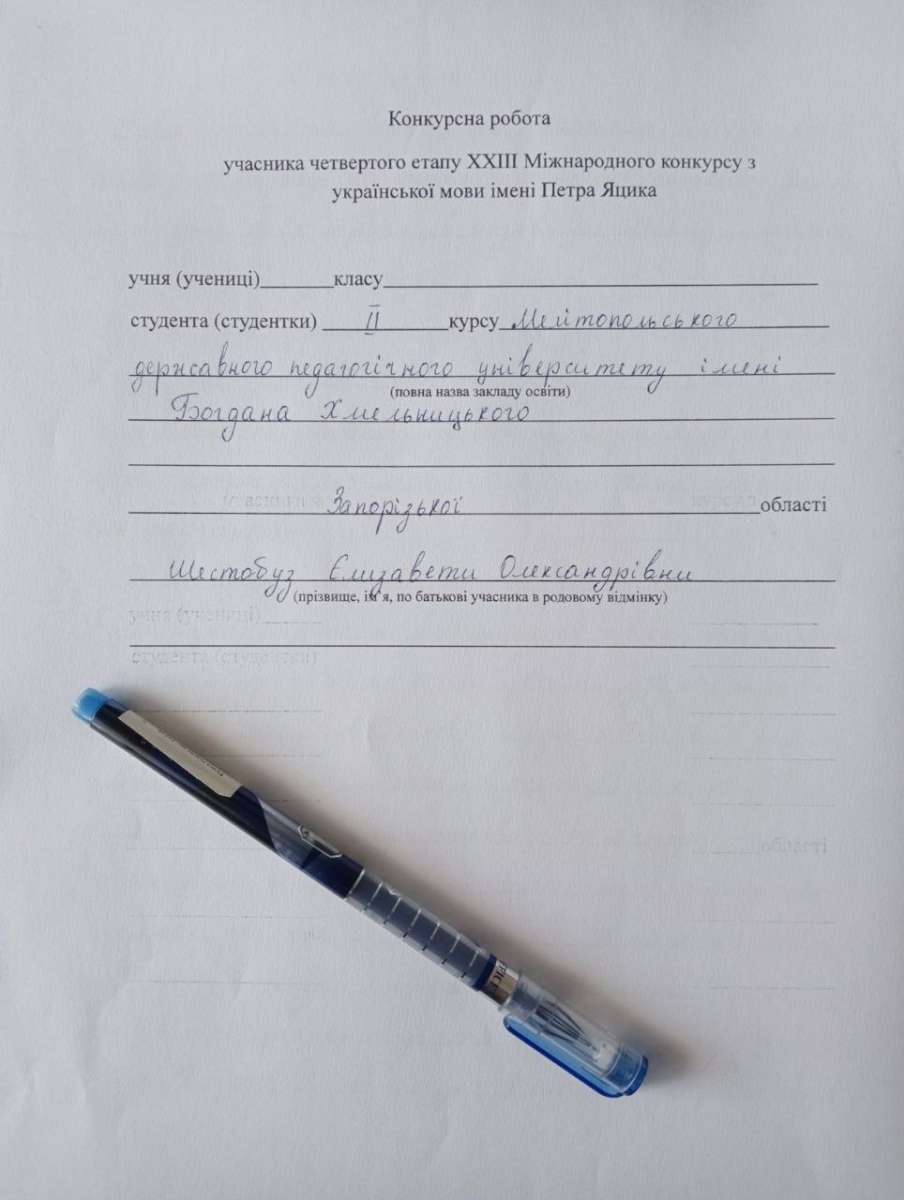 Конкурсна робота
учасника четвертого етапу XXIII Міжнародного конкурсу з
української мови імені Петра Яцика
учня (учениці)_______класу
студента (студентки) II курсу Мелітопольського
державного педагогічного університету імені
(повна назва закладу освіти)
Богдана Хмельницького
Запорізької області
Шестобуз Єлизавети Олександрівни
(прізвище, ім'я, по батькові учасника в родовому відмінку)
учня (учениці)
студента (студентки)
області